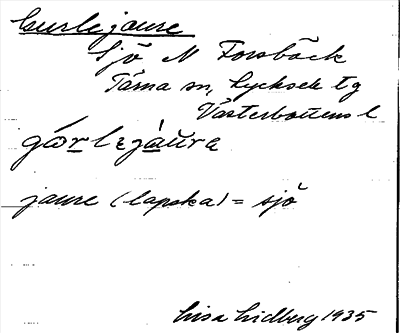 Gurlejaure
Sjö N Forsbäck
Tärna sn, Lycksele tg
Västerbottens l
gώrlεjàu̯ra
jaure (lapska) = sjö
Lisa Lidberg 1935